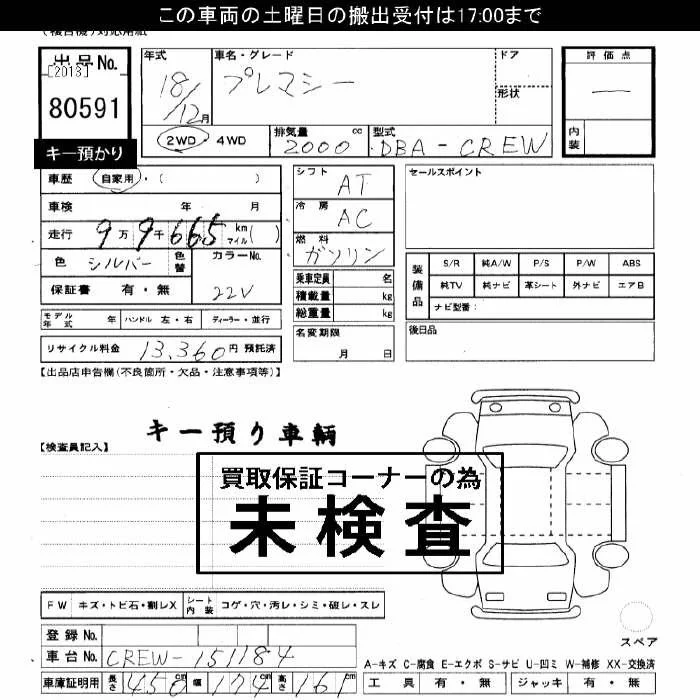 この車両の土曜日の搬出受付は17:00まで
出品No.
[2013]
80591
キー預かり
年式
18/12月
車名・グレード
プレマシー
ドア
形状
評価点
―
内装
2WD・4WD
排気量 2000 cc
型式 DBA-CREW
車歴 自家用・( )
車検 年 月
走行 9万9千665 km マイル( )
色 シルバー 色替
カラーNo. 22V
保証書 有・無
シフト AT
冷房 AC
燃料 ガソリン
乗車定員 名
積載量 kg
総重量 kg
名変期限
月 日
セールスポイント
装備品
S/R 純A/W P/S P/W ABS
純TV 純ナビ 革シート 外ナビ エアB
ナビ型番:
後日品
モデル年式 年 ハンドル 左・右 ディーラー・並行
リサイクル料金 13,360円 預託済
【出品店申告欄(不良箇所・欠品・注意事項等)】
キー預り車輌
【検査員記入】
買取保証コーナーの為
未検査
FW キズ・トビ石・割レX シート内装 コゲ・穴・汚レ・シミ・破レ・スレ
登録No.
車台No. CREW-151184
車庫証明用 長さ 450cm 幅 174cm 高さ 161cm
スペア
A-キズ C-腐食 E-エクボ S-サビ U-凹ミ W-補修 XX-交換済
工具 有・無 ジャッキ 有・無